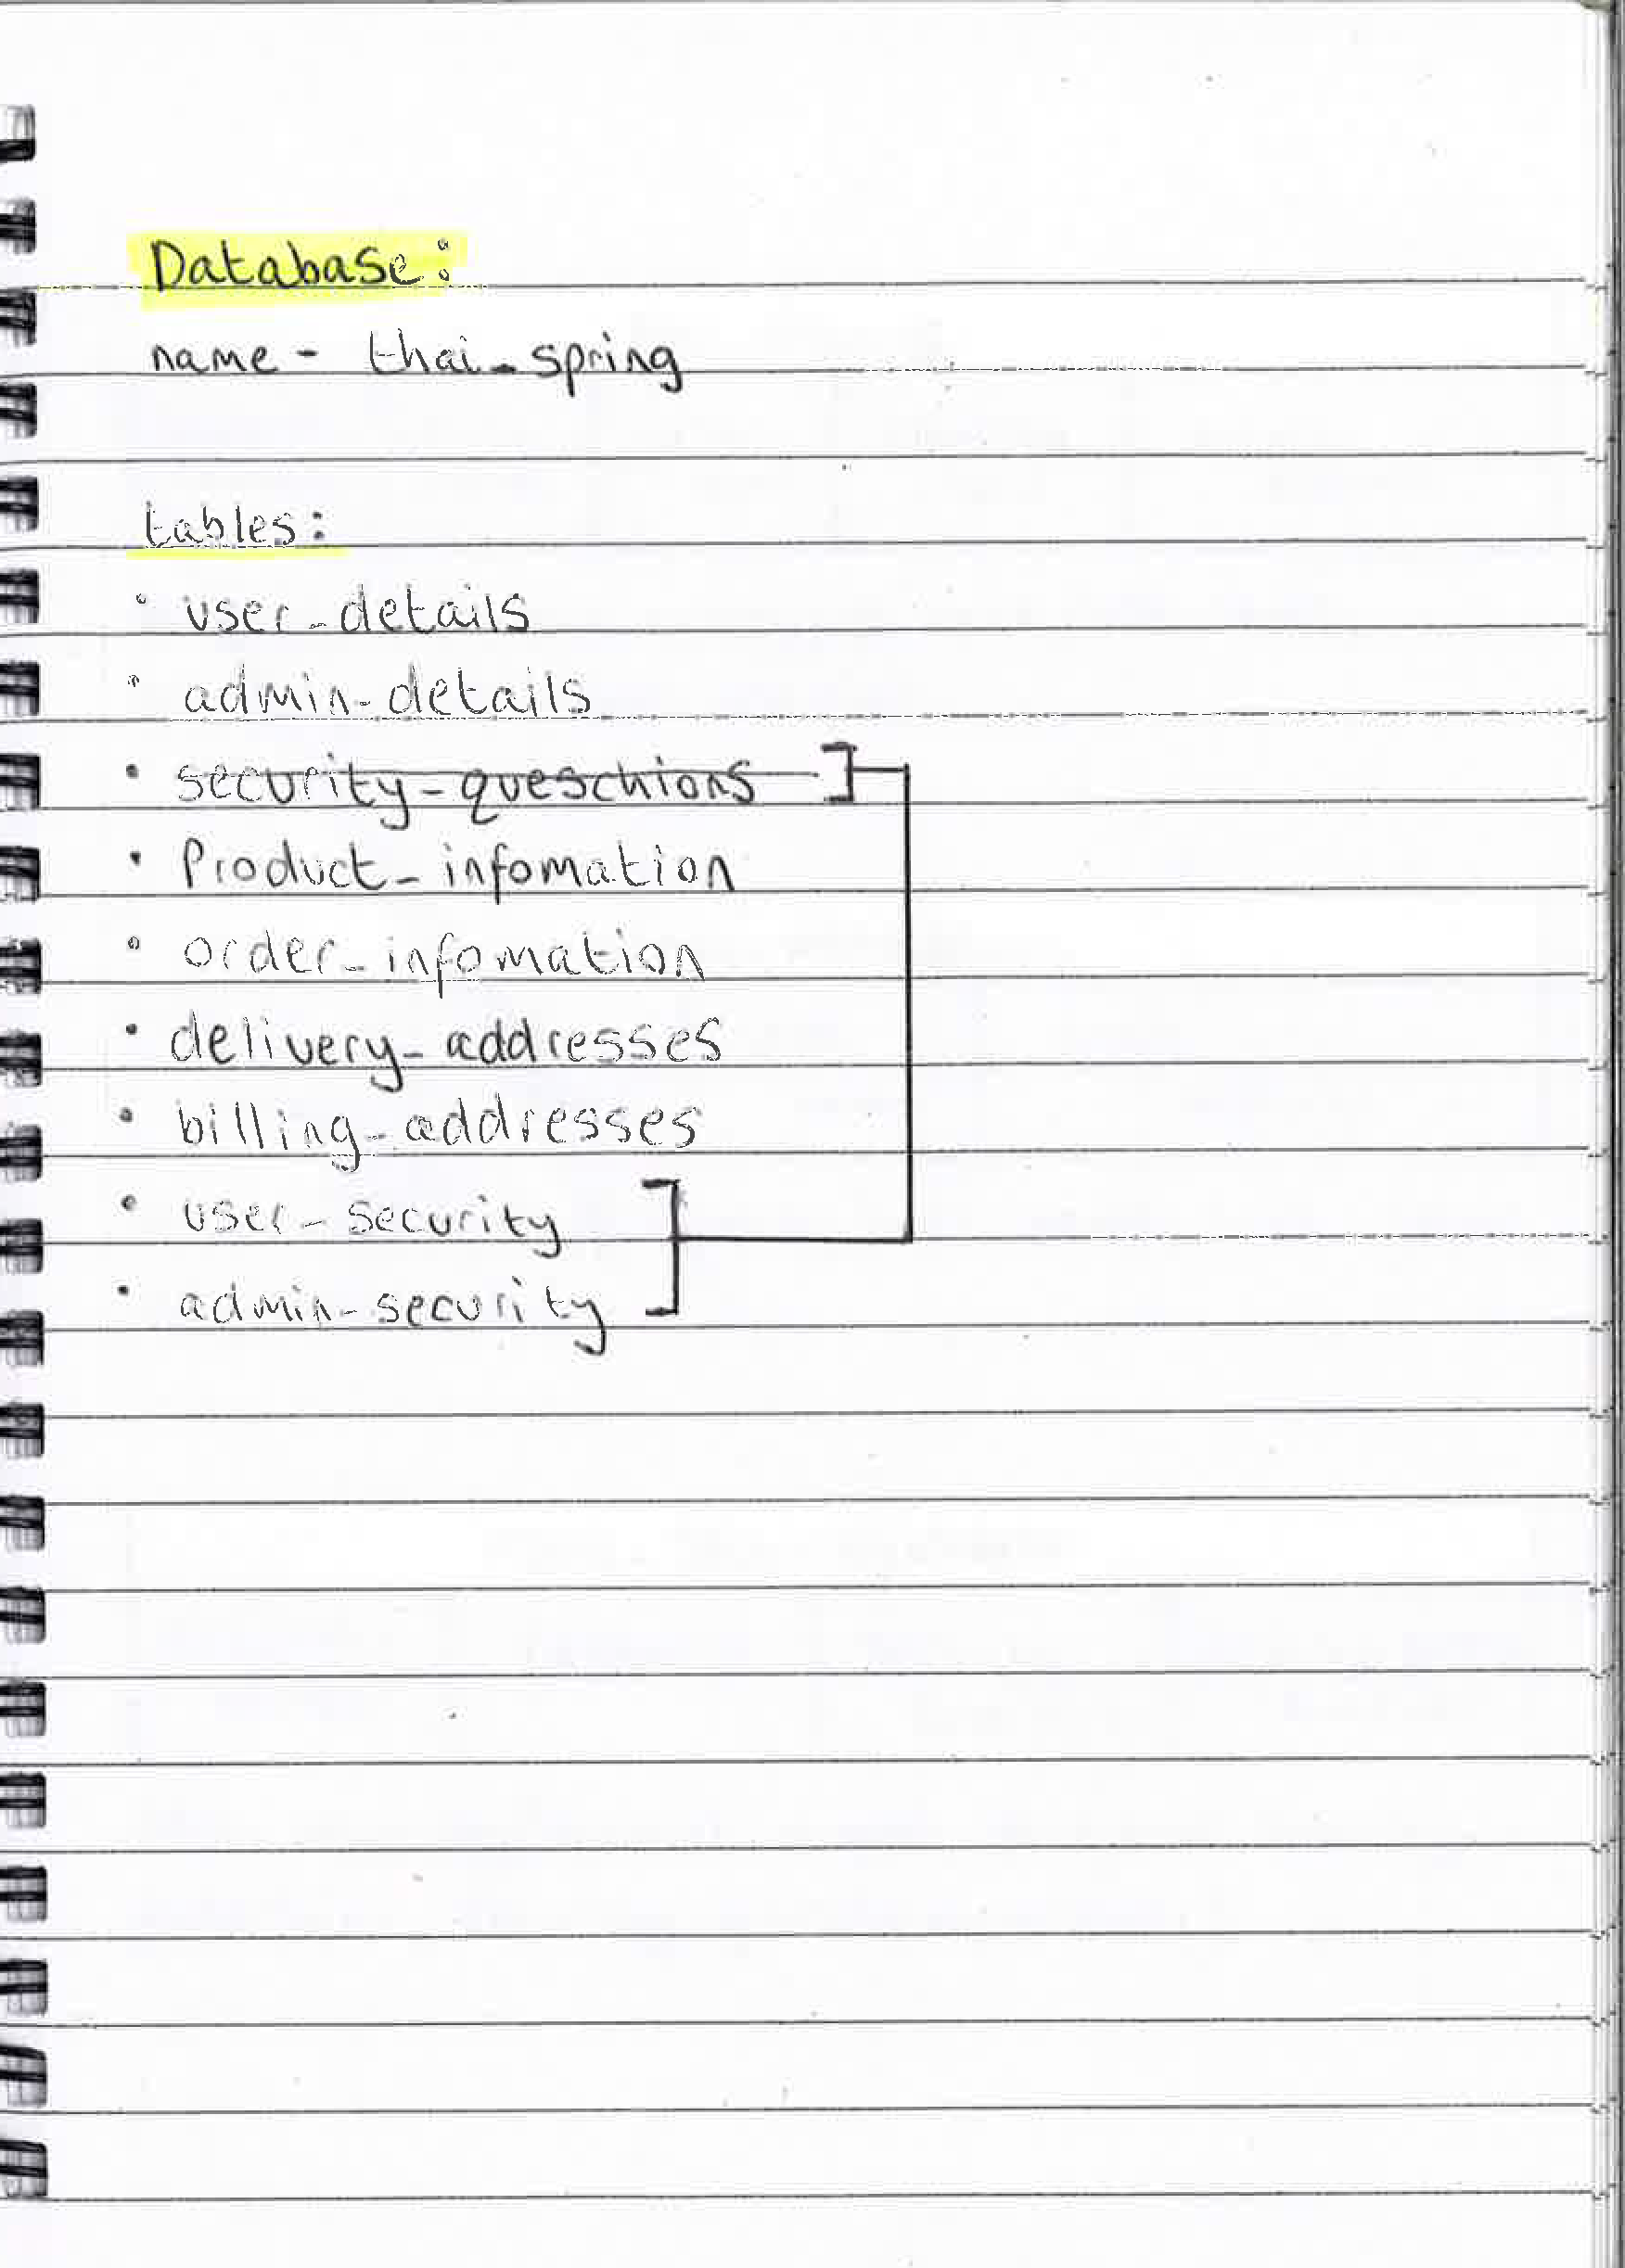 Database:
name - thai_spring
tables:
• user_details
• admin_details
• security_queschions
• Product_infomation
• order_infomation
• delivery_addresses
• billing_addresses
• user_security
• admin_security